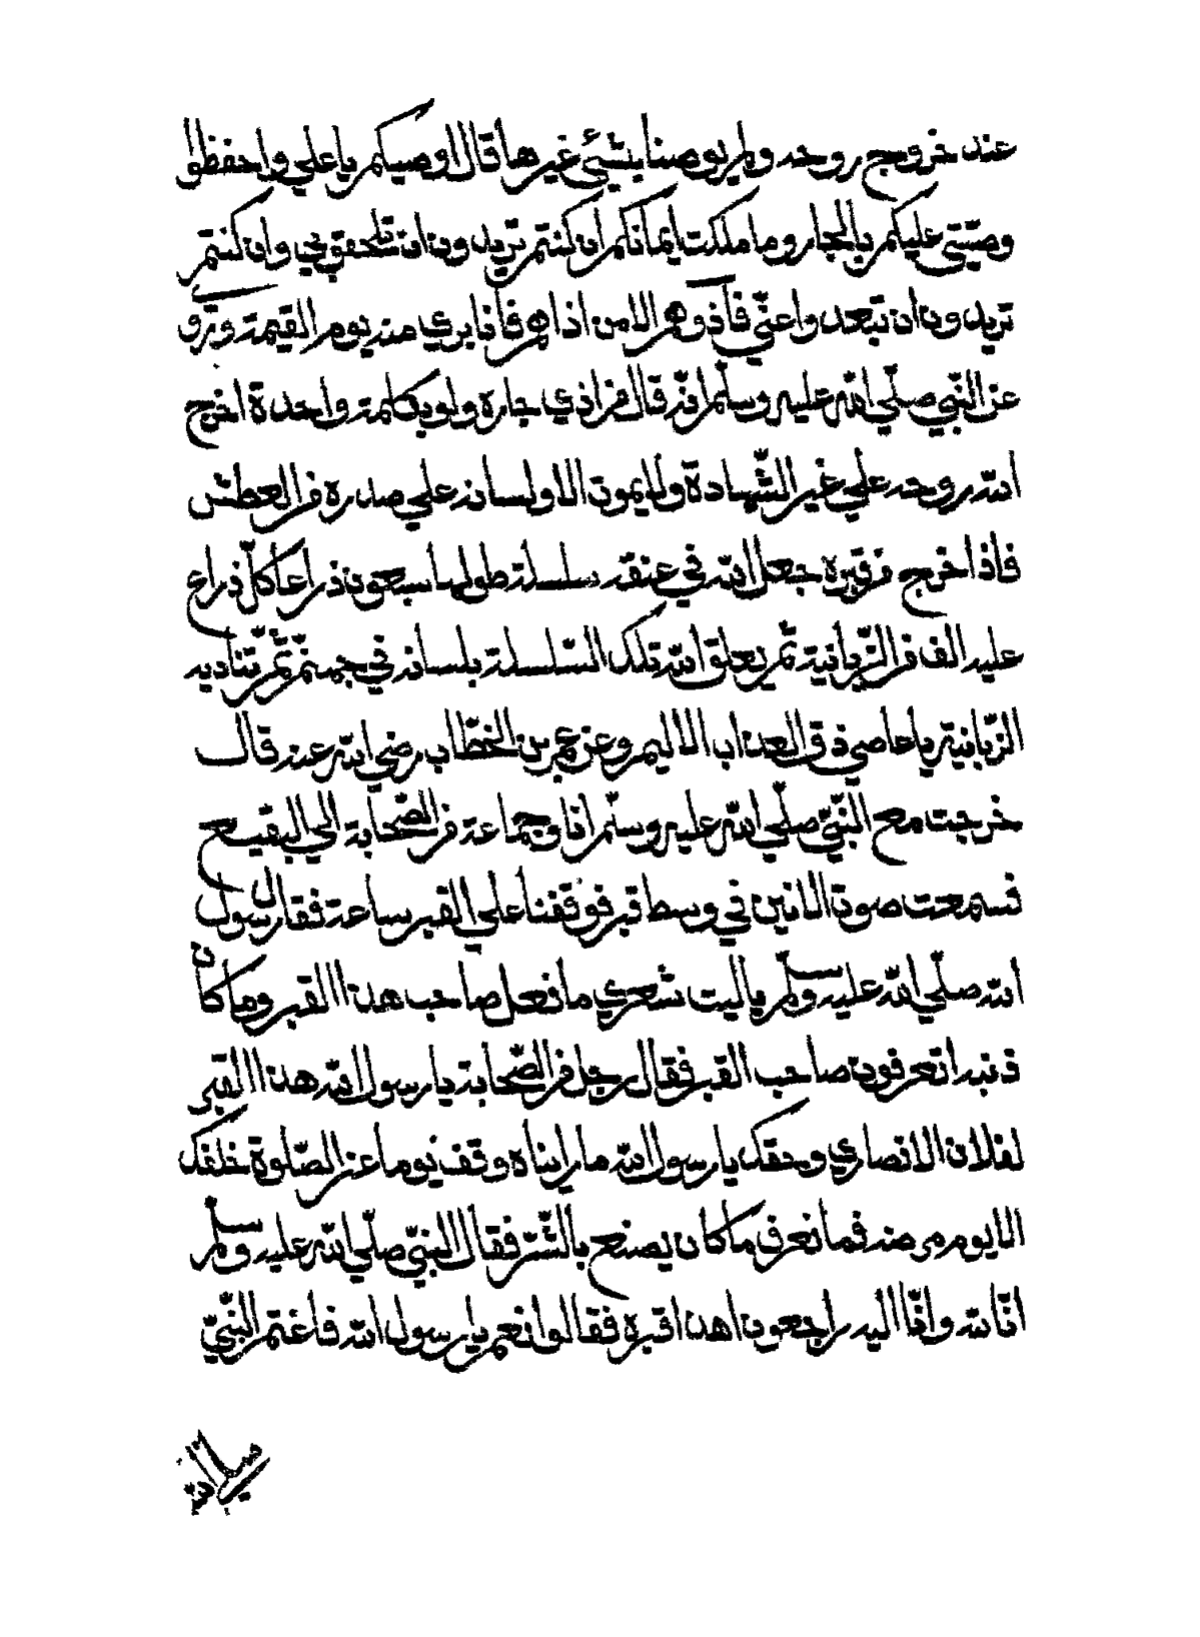 عند خروج روحه ولم يوصنا بشيئ غيرها قال اوصيكم يا علي واحفظوا
وصيّتي عليكم بالجار وما ملكت ايمانكم ان كنتم تريدون ان تلحقوني وان كنتم
تريدون ان تبعدوا عنّي فآذوهم الا من اذاهم فانا بري منه يوم القيمة وروي
عن النّبي صلّي اللّه عليه وسلّم انّه قال من اذي جاره ولو بكلمة واحدة اخرج
اللّه روحه علي غير الشّهادة ولا يموت الا ولسانه علي صدره من العطش
فاذا اخرج من قبره جعل اللّه في عنقه سلسلة طولها سبعون ذراعا كلّ ذراع
عليه الف من الزّبانية ثم يعلق اللّه تلك السّلسلة بلسانه في جهنّم ثمّ تناديه
الزّبانية يا عاصي ذق العذاب الاليم وعن عمر بن الخطّاب رضي اللّه عنه قال
خرجت مع النّبيّ صلّي اللّه عليه وسلّم انا وجماعة من الصّحابة الي البقيع
فسمعت صوت الانين في وسط قبر فوقفنا علي القبر ساعة فقال رسول
اللّه صلّي اللّه عليه وسلّم يا ليت شعري ما فعل صاحب هذا القبر وما كان
ذنبه اتعرفون صاحب القبر فقال رجل من الصّحابة يا رسول اللّه هذا القبر
لفلان الانصاري وحقك يا رسول اللّه ما رايناه وقف يوما عن الصّلوة خلفك
الا يوم مرضه فما نعرف ما كان يصنع بالسّرّ فقال النبيّ صلّي اللّه عليه وسلّم
انّا للّه وانّا اليه راجعون اهذا قبره فقالوا نعم يا رسول اللّه فاغتم النّبيّ